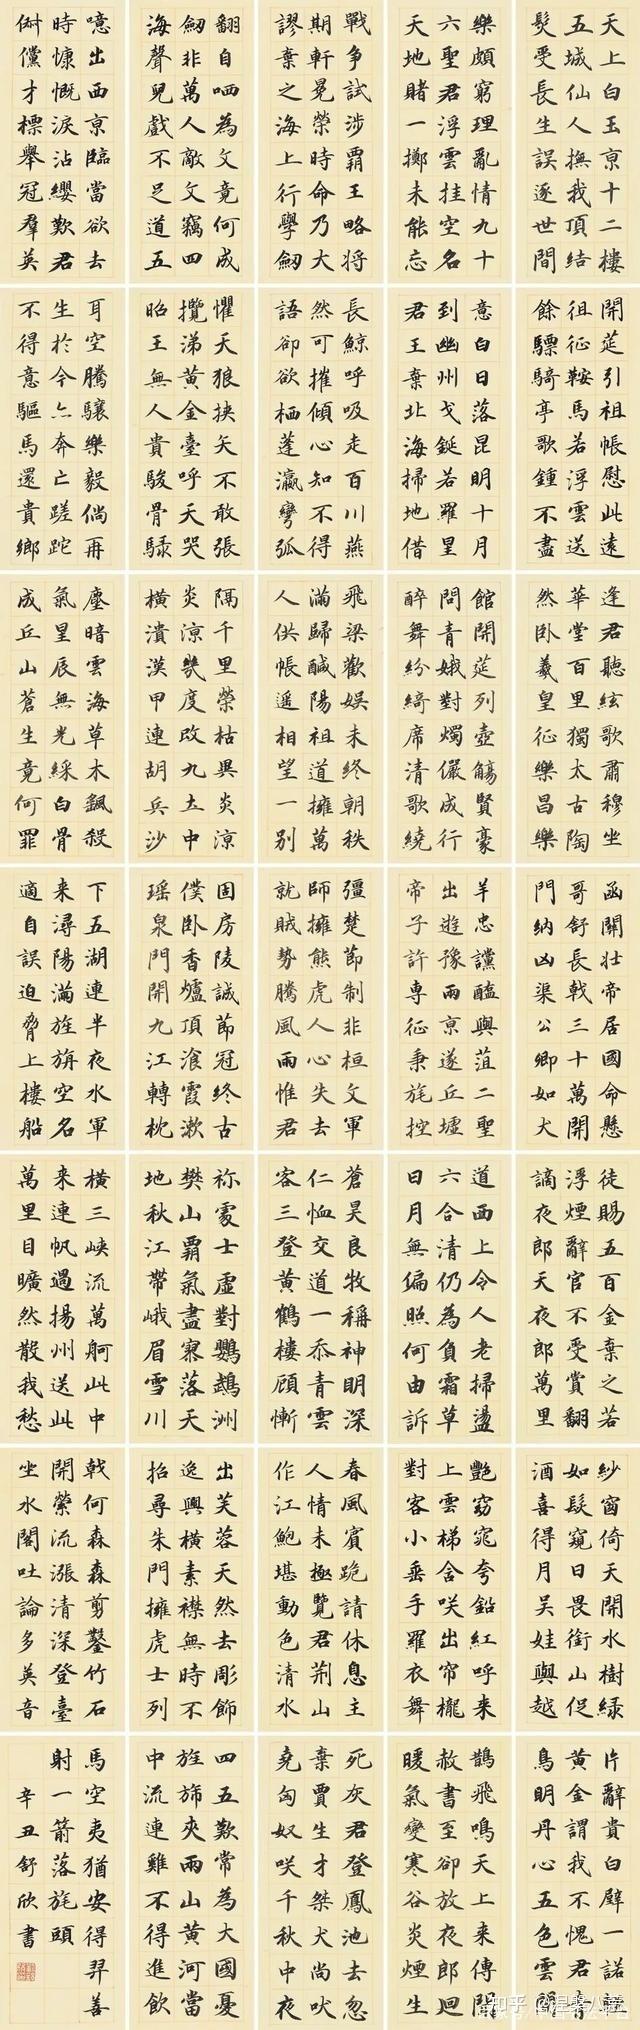 天上白玉京十二樓
五城仙人撫我頂結
髮受長生誤逐世間
樂頗窮理亂情九十
六聖君浮雲挂空名
天地賭一擲未能忘
戰争試涉霸王略將
期軒冕榮時命乃大
謬棄之海上行學劍
翻自哂為文竟何成
劍非萬人敵文竊四
海聲兒戲不足道五
噫出西京臨當欲去
時慷慨淚沾纓歎君
倜儻才標舉冠羣英
開筵引祖帳慰此遠
徂征鞍馬若浮雲送
餘驃騎亭歌鍾不盡
意白日落昆明十月
到幽州戈鋋若羅星
君王棄北海掃地借
長鯨呼吸走百川燕
然可摧傾心知不得
語卻欲栖蓬瀛彎弧
懼天狼挾矢不敢張
攬涕黃金臺呼天哭
昭王無人貴駿骨騄
耳空騰驤樂毅倘再
生於今亦奔亡蹉跎
不得意驅馬還貴鄉
逢君聽絃歌肅穆坐
華堂百里獨太古陶
然卧羲皇征樂昌樂
館開筵列壺觴賢豪
間青娥對燭儼成行
醉舞紛綺席清歌繞
飛梁歡娛未終朝秩
滿歸鹹陽祖道擁萬
人供帳遥相望一別
隔千里榮枯異炎涼
炎涼幾度改九土中
橫潰漢甲連胡兵沙
塵暗雲海草木颻殺
氣星辰無光綵白骨
成丘山蒼生竟何罪
函關壯帝居國命懸
哥舒長戟三十萬開
門納凶渠公卿如犬
羊忠讜醢與菹二聖
出遊豫兩京遂丘墟
帝子許專征秉旄控
彊楚節制非桓文軍
師擁熊虎人心失去
就賊勢騰風雨惟君
固房陵誠節冠終古
僕卧香爐頂飡霞漱
瑶泉門開九江轉枕
下五湖連半夜水軍
来潯陽滿旌旃空名
適自誤迫脅上樓船
徒賜五百金棄之若
浮煙辭官不受賞翻
謫夜郎天夜郎萬里
道西上令人老掃盪
六合清仍為負霜草
日月無偏照何由訴
蒼昊良牧稱神明深
仁恤交道一忝青雲
客三登黃鶴樓顧慚
祢處士虛對鸚鵡洲
樊山霸氣盡寥落天
地秋江帶峨眉雪川
橫三峽流萬舸此中
来連帆過揚州送此
萬里目曠然散我愁
紗窗倚天開水樹綠
如髮窺日畏銜山促
酒喜得月吳娃與越
艷窈窕夸鉛紅呼来
上雲梯含咲出帘櫳
對客小垂手羅衣舞
春風賓跪請休息主
人情未極覽君荆山
作江鮑堪動色清水
出芙蓉天然去彫飾
逸興橫素襟無時不
招尋朱門擁虎士列
戟何森森剪鑿竹石
開縈流漲清深登臺
坐水閣吐論多英音
片辭貴白璧一諾輕
黃金謂我不愧君青
鳥明丹心五色雲間
鵲飛鳴天上来傳聞
赦書至卻放夜郎迴
暖氣變寒谷炎煙生
死灰君登鳳池去忽
棄賈生才桀犬尚吠
堯匈奴咲千秋中夜
四五歎常為大國憂
旌旆夾兩山黃河當
中流連雞不得進飲
馬空夷猶安得羿善
射一箭落旄頭
辛丑舒欣書